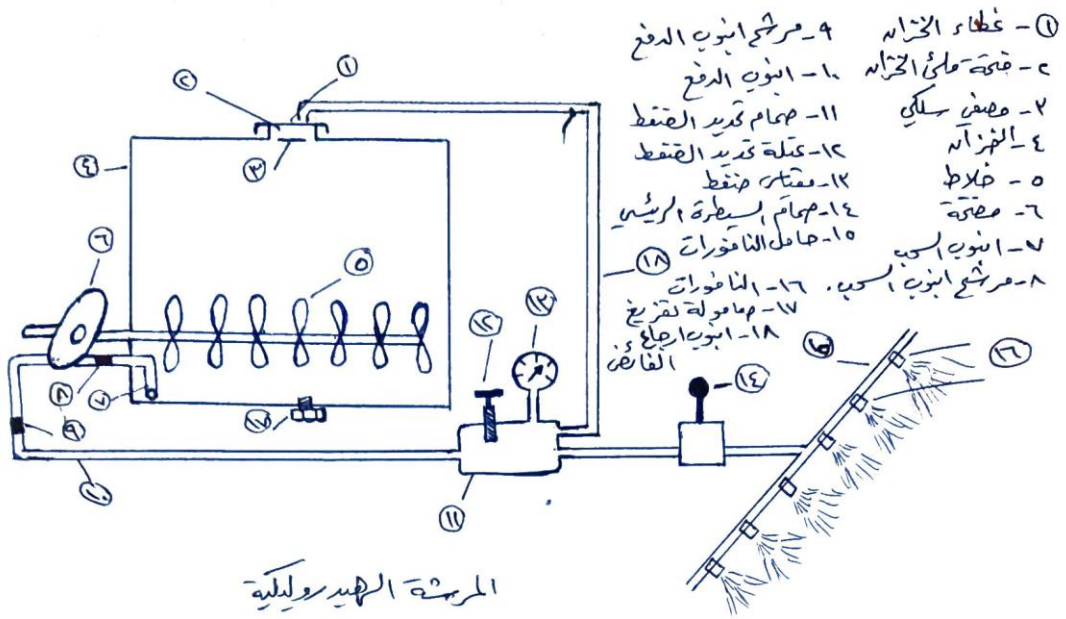 ١- غطاء الخزان
٢- فتحة ملئ الخزان
٣- مصفي سلكي
٤- الخزان
٥- خلاط
٦- مضخة
٧- انبوب السحب
٨- مرشح انبوب السحب.
٩- مرشح انبوب الدفع
١٠- انبوب الدفع
١١- صمام تحديد الضغط
١٢- عتلة تحديد الضغط
١٣- مقياس ضغط
١٤- صمام السيطرة الرئيسي
١٥- حامل النافورات
١٦- النافورات
١٧- صامولة تفريغ
١٨- انبوب ارجاع
الفائض
١
٢
٣
٤
٥
٦
٧
٨
٩
١٠
١١
١٢
١٣
١٤
١٥
١٦
١٧
١٨
المرشة الهيدروليكية